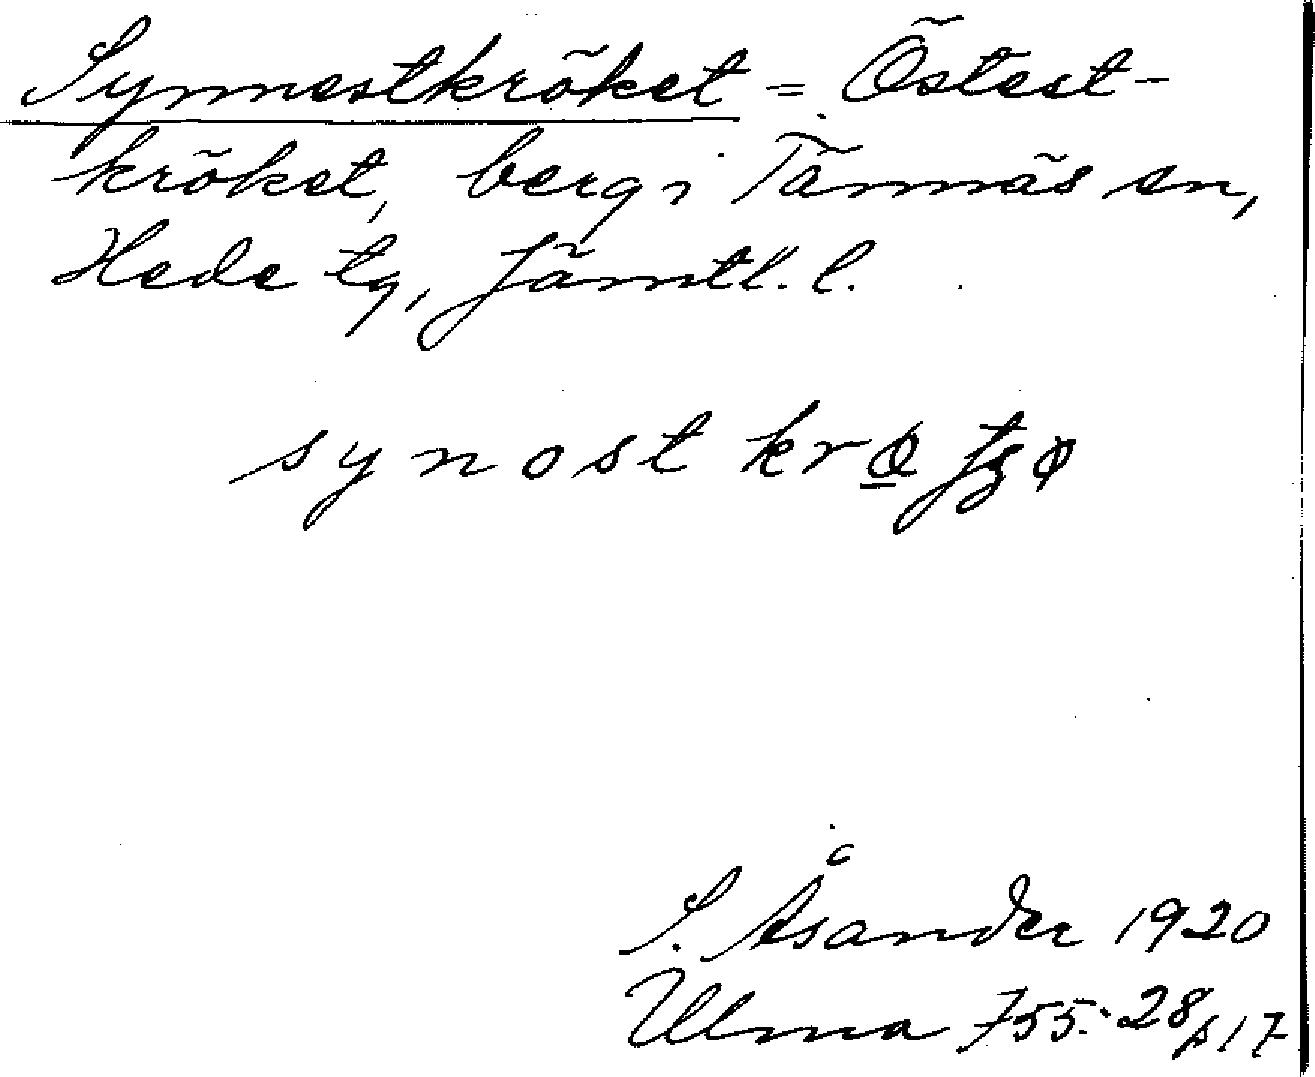 Synnestkröket = Östest-
kröket, berg i Tännäs sn,
Hede tg, Jämtl. l.
synost
S. Åsander 1920
Ulma 755:28 s 17